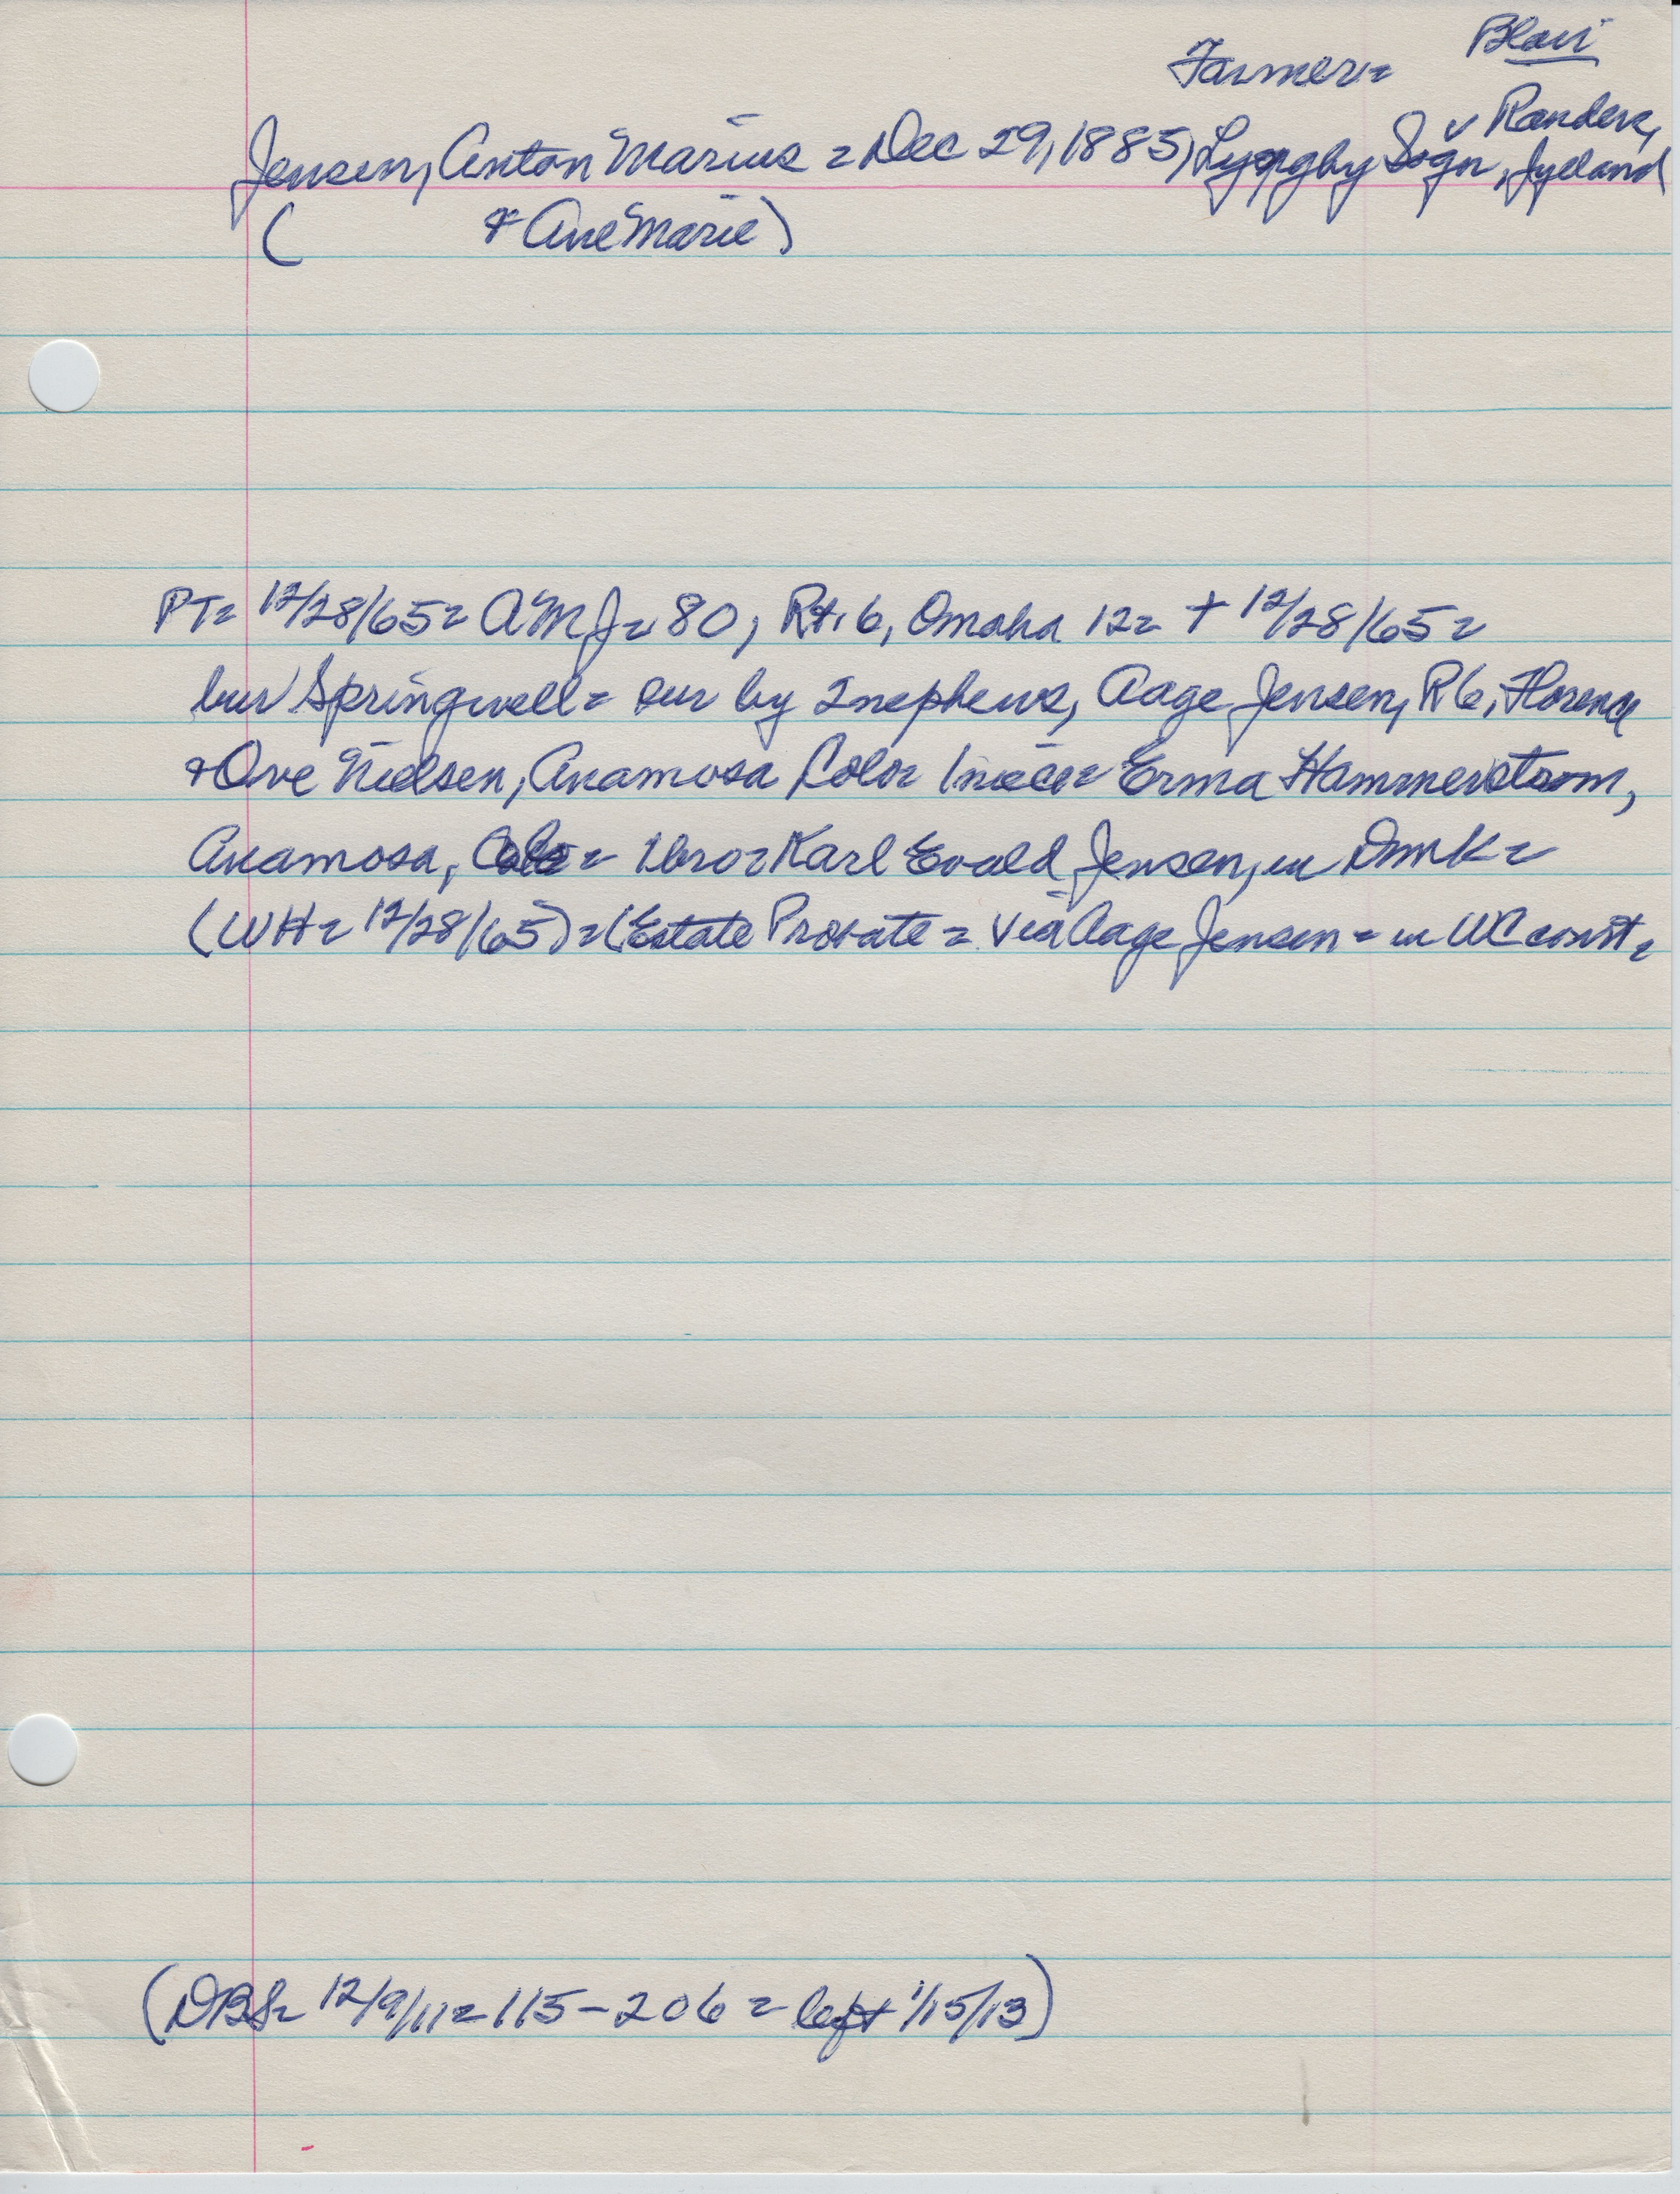 Blair
Farmer=
v Randers,
Jensen, Anton Marius = Dec 29, 1885, Lyngby Sogn, Jylland
( + Ane Marie)
PT= 12/28/65= AMJ= 80, Rt. 6, Omaha 12= + 12/28/65=
bur Springwell= sur by 2 nephews, Aage Jensen, R6, Florence
+ Ove Nielsen, Anamosa Colo= 1 niece= Erma Hammerstrom,
Anamosa, Colo= 1 bro= Karl Evald Jensen, in Dmk=
(WH= 12/28/65)= (Estate Probate = via Aage Jensen = in WC court=
(DBS= 12/9/11= 115-206= left 1/15/13)